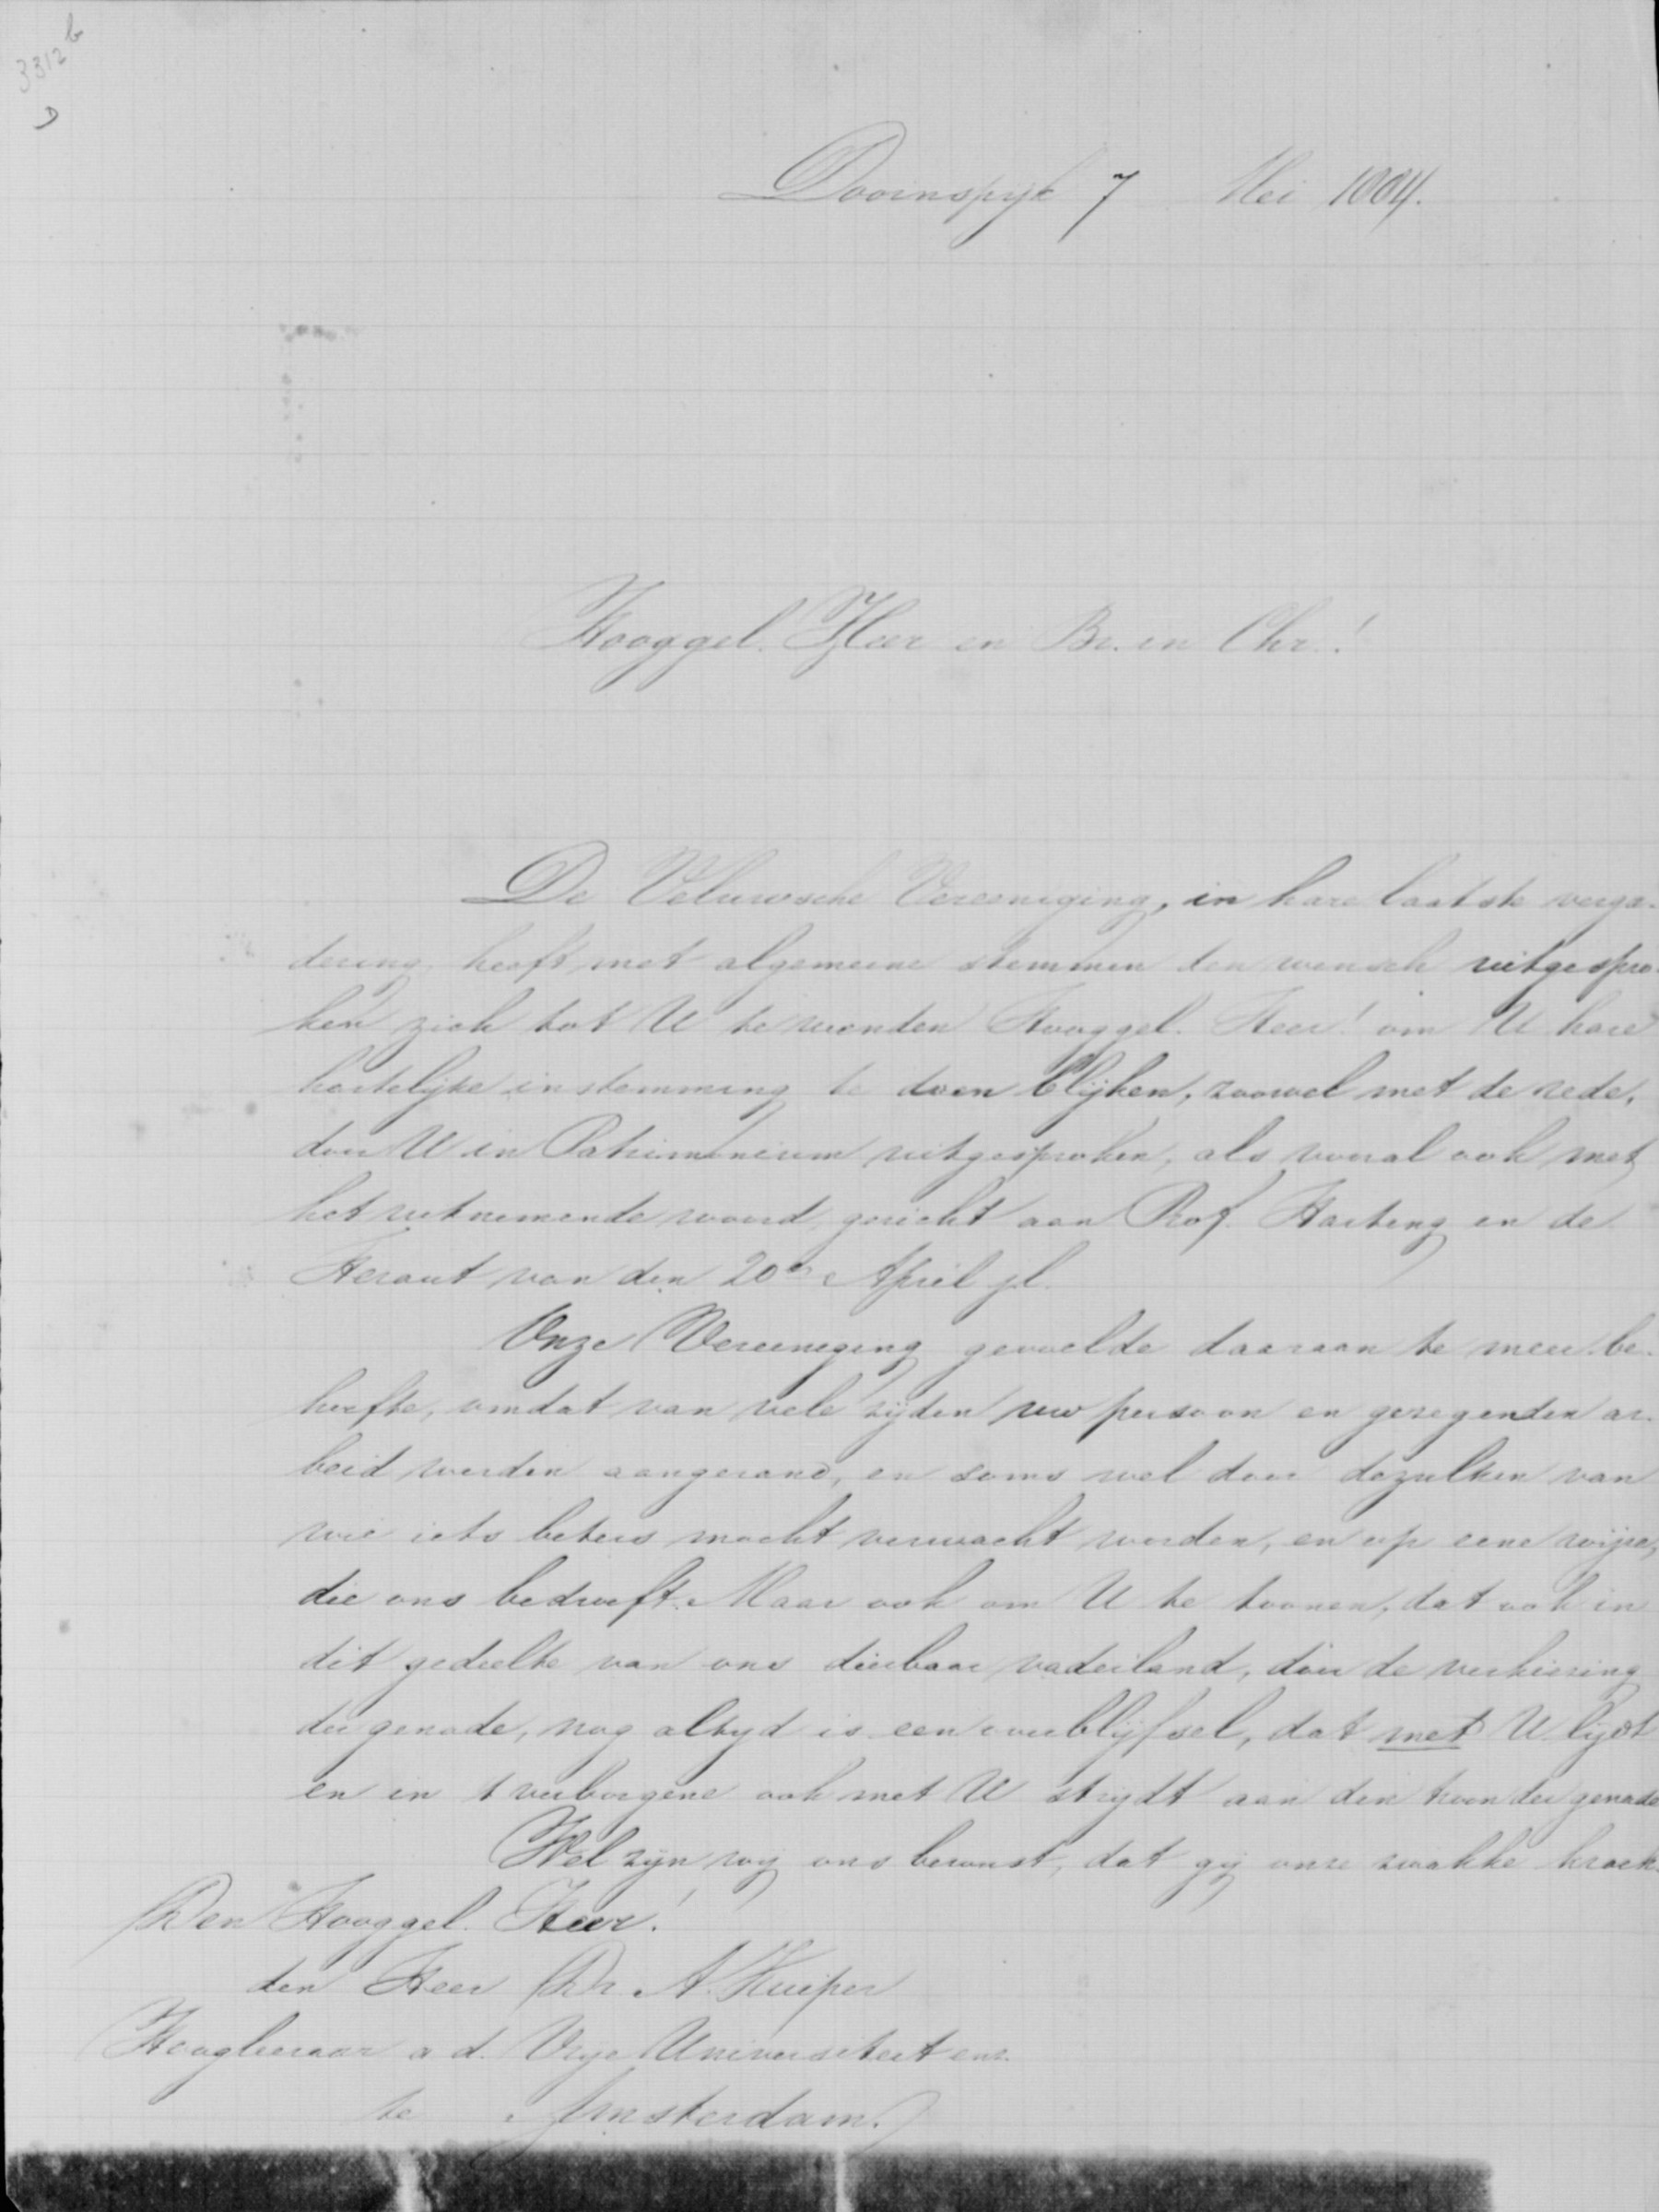 3312 b
D
Doornspijk 7 Mei 1884.
Hooggel. Heer en Br. in Chr.!
De Veluwsche Vereeniging, in hare laatste verga-
dering, heeft met algemeene stemmen den wensch uitgespro-
ken zich tot U te wenden Hooggel. Heer! om U hare
hartelijke instemming te doen blijken, zoowel met de rede,
door U in Patrimonium uitgesproken, als vooral ook met
het uitnemende woord, gericht aan Prof. Harting in de
Heraut van den 20n April jl.
Onze Vereeniging gevoelde daaraan te meer be-
hoefte, omdat van vele zijden uw persoon en gezegenden ar-
beid werden aangerand, en soms wel door dezulken van
wie iets beters mocht verwacht worden, en op eene wijze,
die ons bedroeft. Maar ook om U te toonen, dat ook in
dit gedeelte van ons dierbaar vaderland, door de verkiezing
der genade, nog altyd is een overblijfsel, dat met U lijdt
en in 't verborgene ook met U strijdt aan den troon der genade
Wel zijn wij ons bewust, dat gij onze zwakke krach-
Den Hooggel. Heer!
den Heer Dr. A. Kuiper
Hoogleeraar a. d. Vrije Universiteit enz.
te Amsterdam.